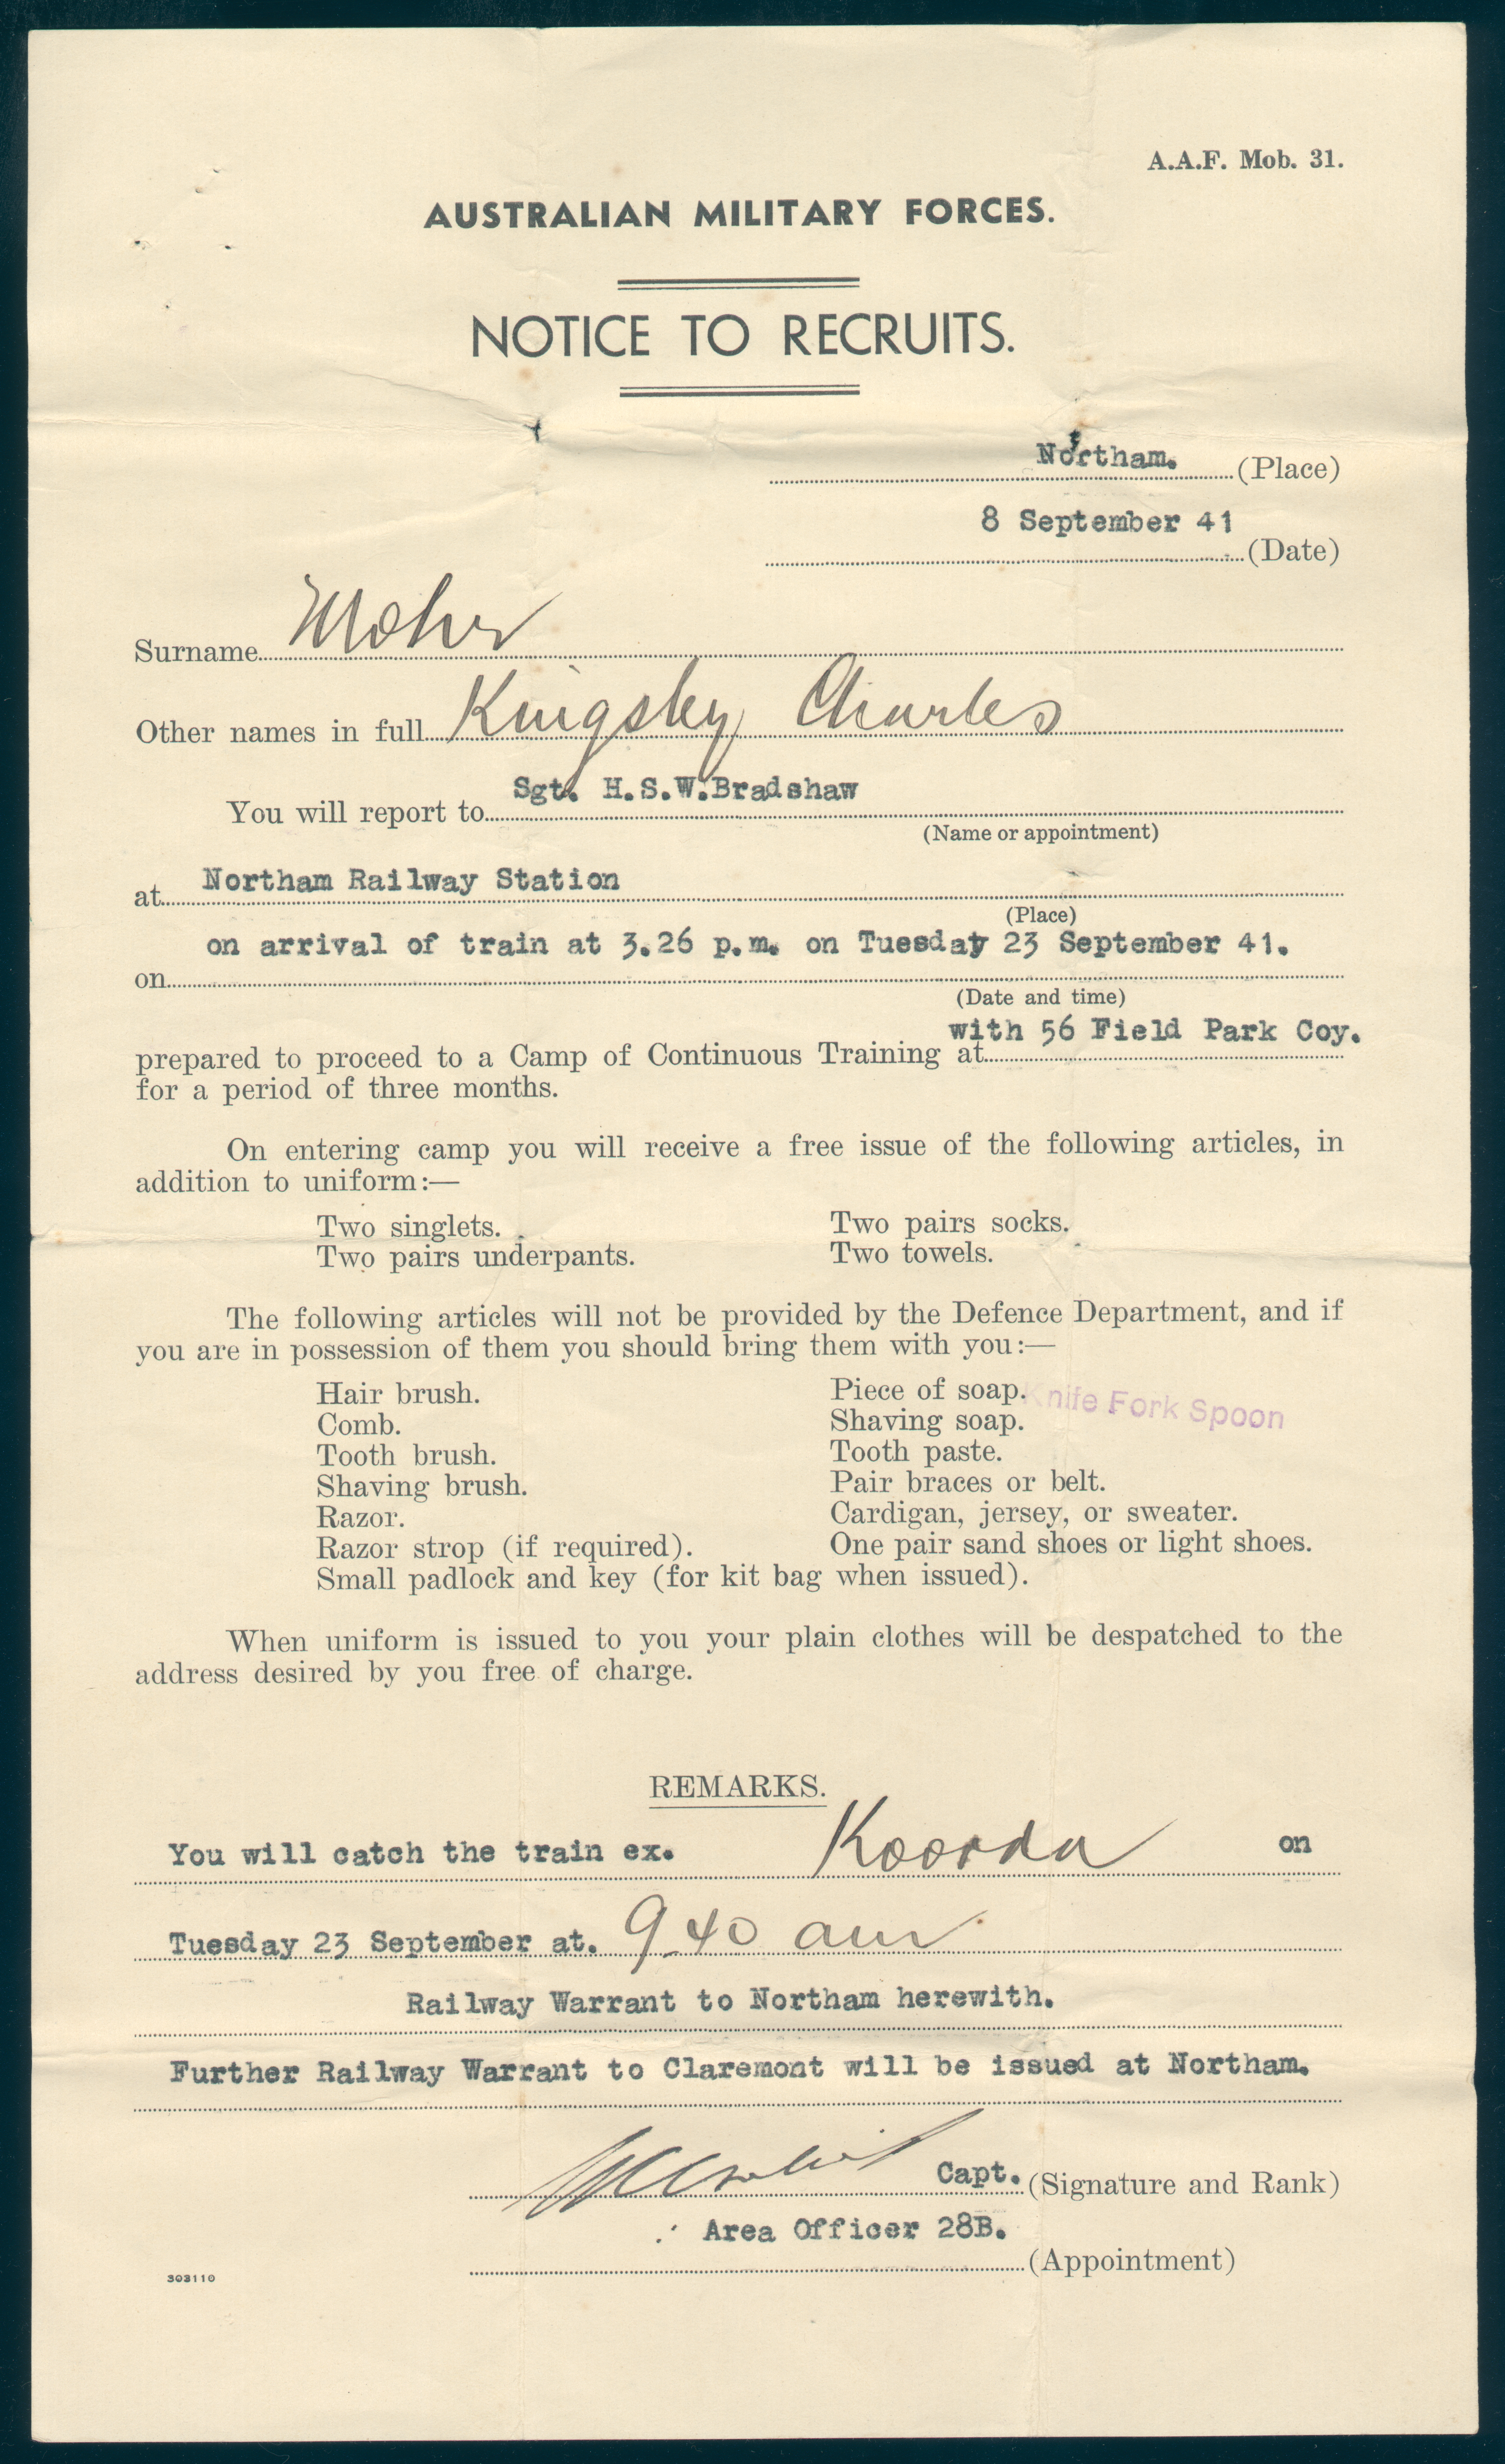 A.A.F. Mob. 31.
AUSTRALIAN MILITARY FORCES.
NOTICE TO RECRUITS.
Northam. (Place)
8 September 41 (Date)
Surname Mohr
Other names in full Kingsley Charles
You will report to Sgt. H.S.W.Bradshaw
(Name or appointment)
at Northam Railway Station
(Place)
on arrival of train at 3.26 p.m. on Tuesday 23 September 41.
on
(Date and time)
with 56 Field Park Coy.
prepared to proceed to a Camp of Continuous Training at
for a period of three months.
On entering camp you will receive a free issue of the following articles, in
addition to uniform:—
Two singlets. Two pairs socks.
Two pairs underpants. Two towels.
The following articles will not be provided by the Defence Department, and if
you are in possession of them you should bring them with you:—
Hair brush. Piece of soap. Knife Fork Spoon
Comb. Shaving soap.
Tooth brush. Tooth paste.
Shaving brush. Pair braces or belt.
Razor. Cardigan, jersey, or sweater.
Razor strop (if required). One pair sand shoes or light shoes.
Small padlock and key (for kit bag when issued).
When uniform is issued to you your plain clothes will be despatched to the
address desired by you free of charge.
REMARKS.
You will catch the train ex. Koorda on
Tuesday 23 September at. 9.40 am
Railway Warrant to Northam herewith.
Further Railway Warrant to Claremont will be issued at Northam.
Capt. (Signature and Rank)
Area Officer 28B.
(Appointment)
303110